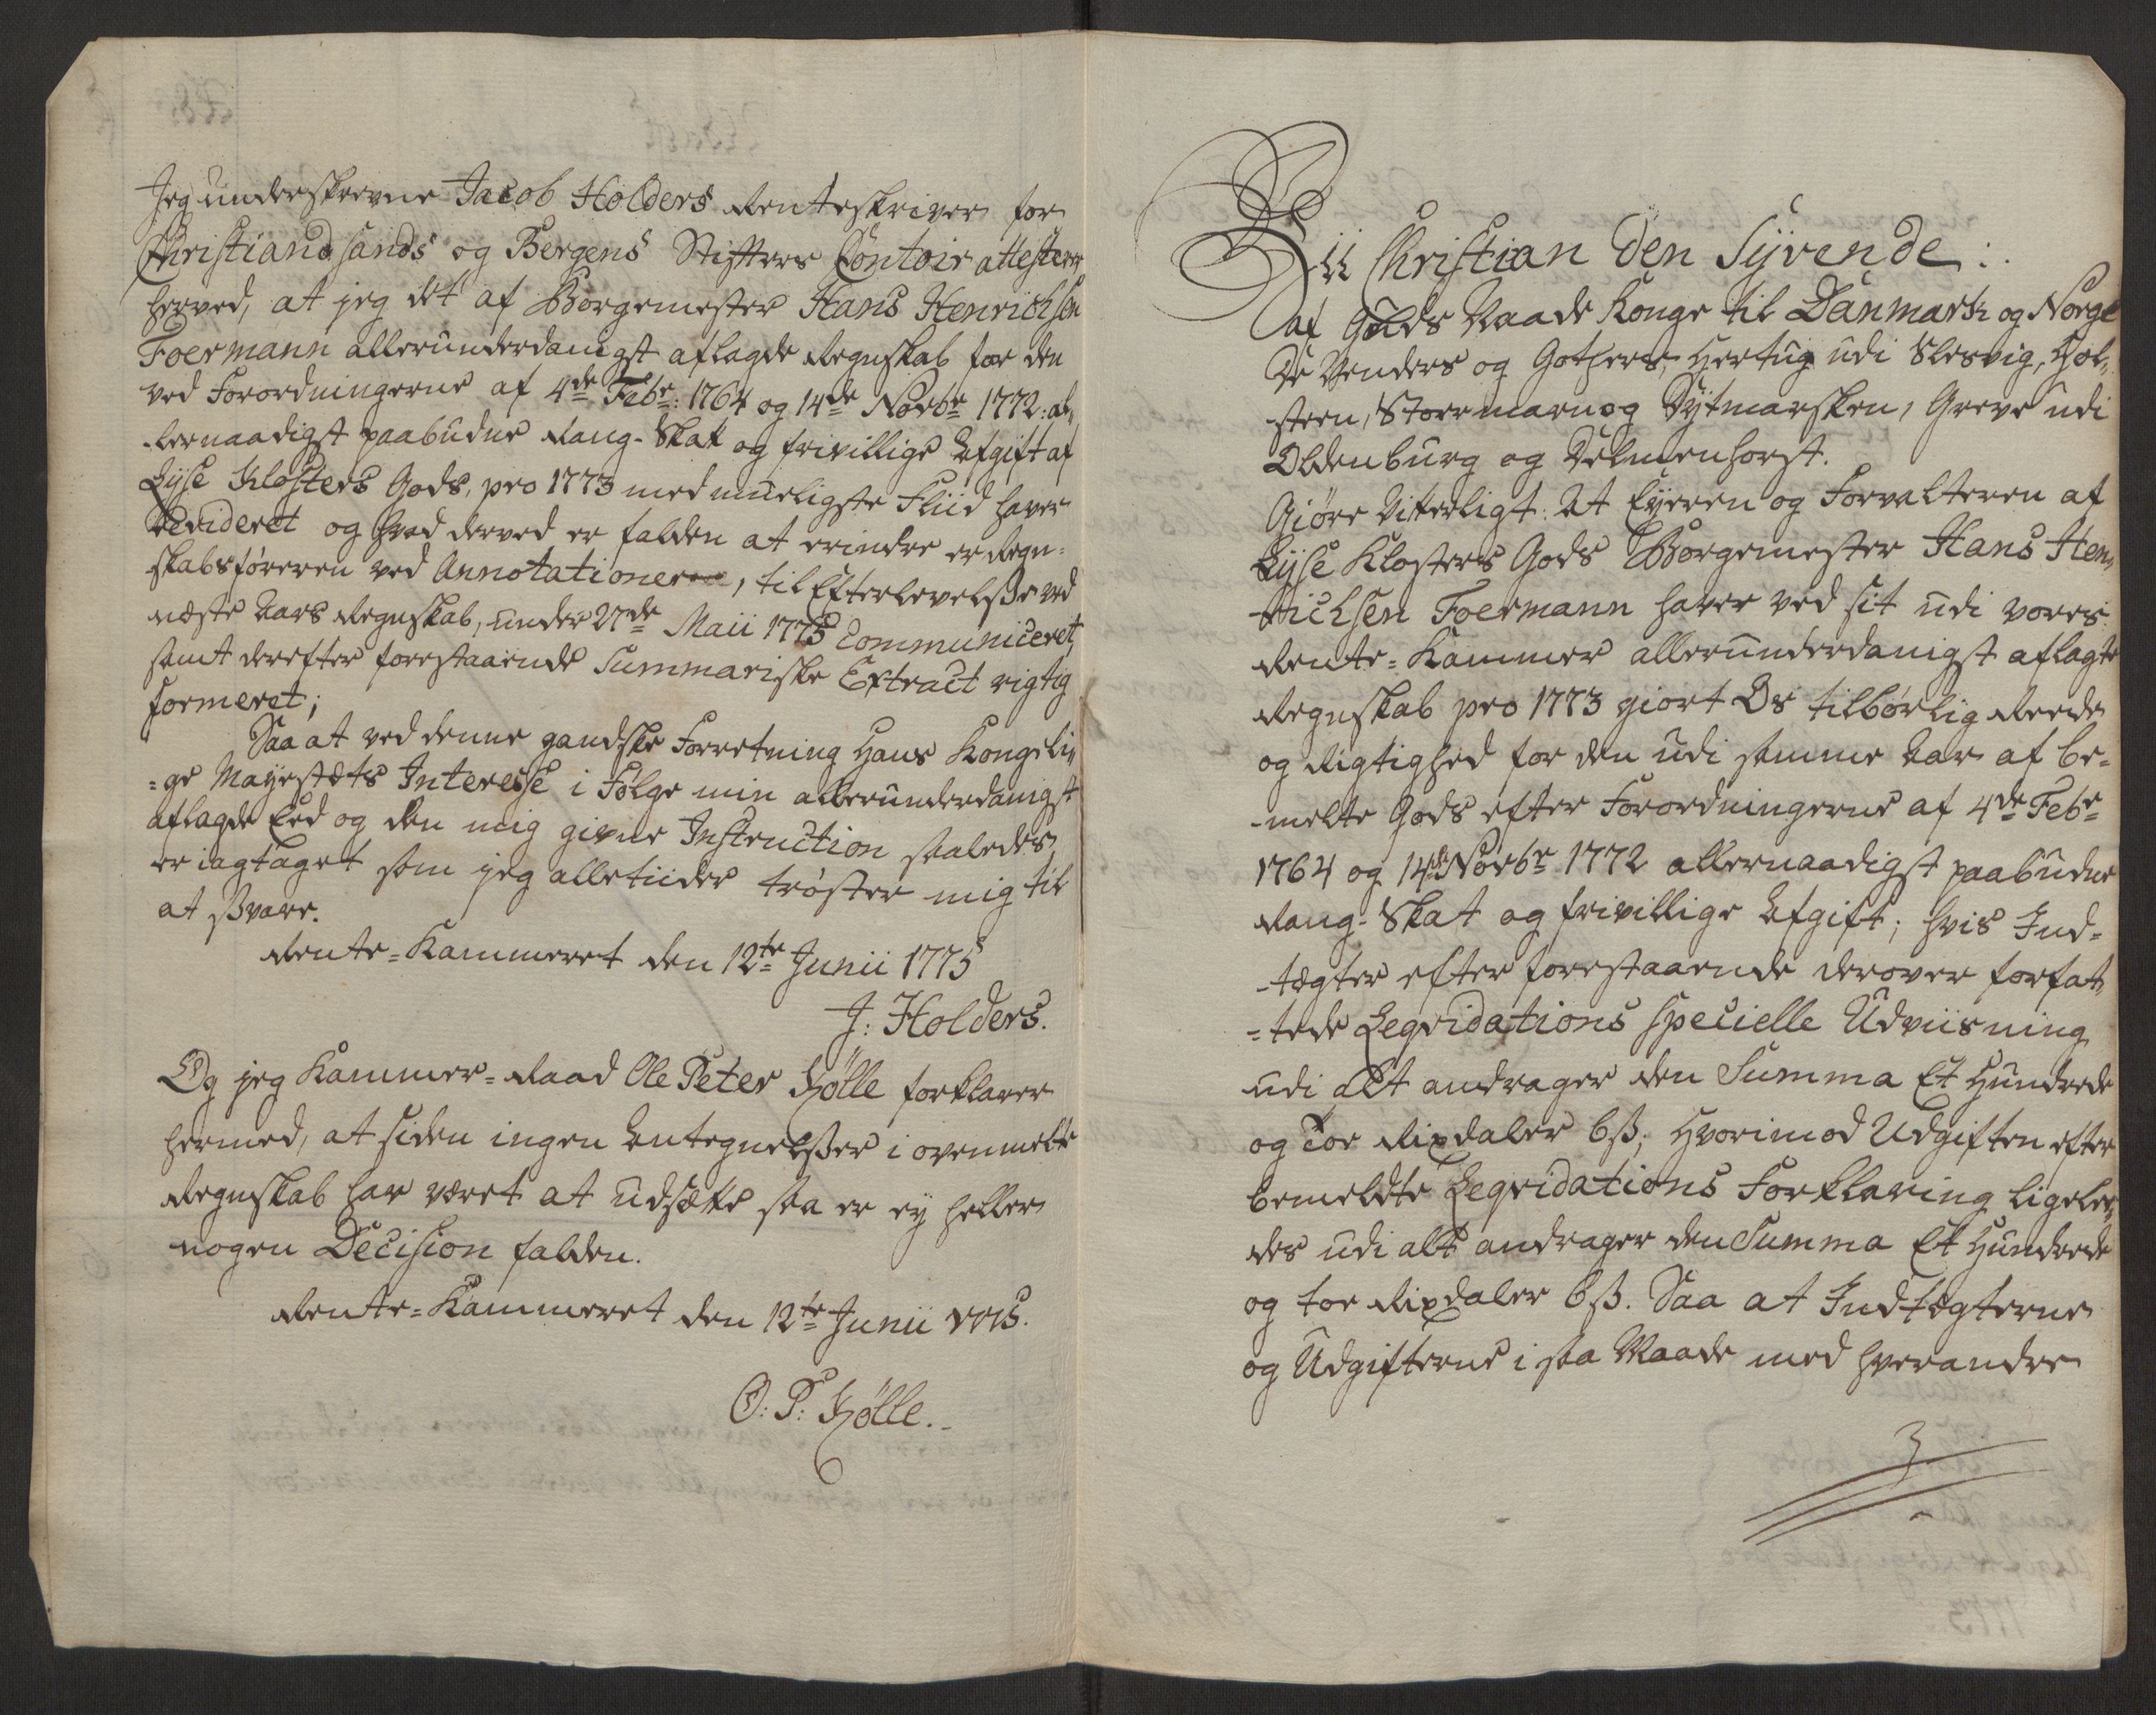 Jeg underskrevne Jacob Holders Renteskriver for
Christiandsands og Bergens Stifters Contoir attesterer
herved, at jeg det af Borgemester Hans Henrichsen
Foermann allerunderdanigst aflagde Regnskab for den
ved Forordningerne af 4de Febr: 1764 og 14de Novbr 1772: al„
lernaadigst paabudne Rang-Skat og frivillige Afgift af
Lyse Klosters Gods, pro 1773 med mueligste Fliid haver
Revideret og hvad derved er falden at erindre er Regn-
skabsføreren ved Annotationer, til Efterlevelsse ved
næste Aars Regnskab, under 27de Maii 1775 Communiceret,
samt derefter forestaaende Summariske Extract rigtig
formeret;
Saa at ved denne gandske Forretning Hans Kongeli„
-ge Mayestæts Interesse i Følge min allerunderdanigst
aflagde Eed og den mig givne Instruction saaledes
er iagtaget som jeg alletiider trøster mig til
at svare.
Rente-Kammeret den 12te Junii 1775
J: Holders.
Og jeg Kammer-Raad Ole Peter Kølle forklarer
hermed, at siden ingen Antegnelsser i ovenmelte
Regnskab har været at udsætte saa er ey heller
nogen Decision falden.
Rente-Kammeret den 12te Junii 1775.
O: P: Kølle.
Vii Christian den Syvende:
af Guds Naade Konge til Danmark og Norge
De Venders og Gothers, Hertug udi Slesvig, Hol„
steen, Stormarn og Dytmarsken, Greve udi
Oldenburg og Delmenhorst.
Giøre Vitterligt: At Eyeren og Forvalteren af
Lyse Klosters Gods Borgemester Hans Hen„
richsen Foermann haver ved sit udi vores
Rente-Kammer allerunderdanigst aflagte
Regnskab pro 1773 giort Os tilbørlig Reede
og Rigtighed for den udi samme Aar af be-
-melte Gods efter Forordningerne af 4de Febr
1764 og 14de Novbr 1772 allernaadigst paabudne
Rang-Skat og frivillige Afgift; hvis Ind-
-tægter efter forestaaende derover forfat„
-tede Leqvidations specielle Udviisning
udi alt andrager den Summa Et Hundrede
og Toe Rixdaler 6 ß; Hvorimod Udgiften efter
bemeldte Leqvidations Forklaring ligelee„
des udi alt andrager den Summa Et Hundrede
og toe Rixdaler 6 ß. Saa at Indtægterne
og Udgifterne i saa Maade med hverandre